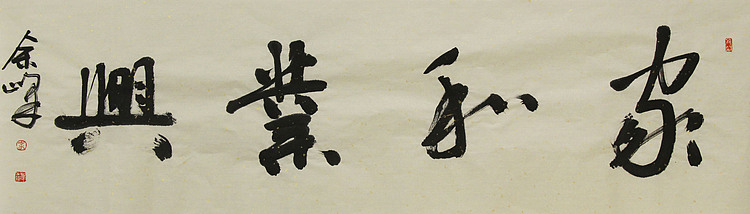 家和業興
余峰